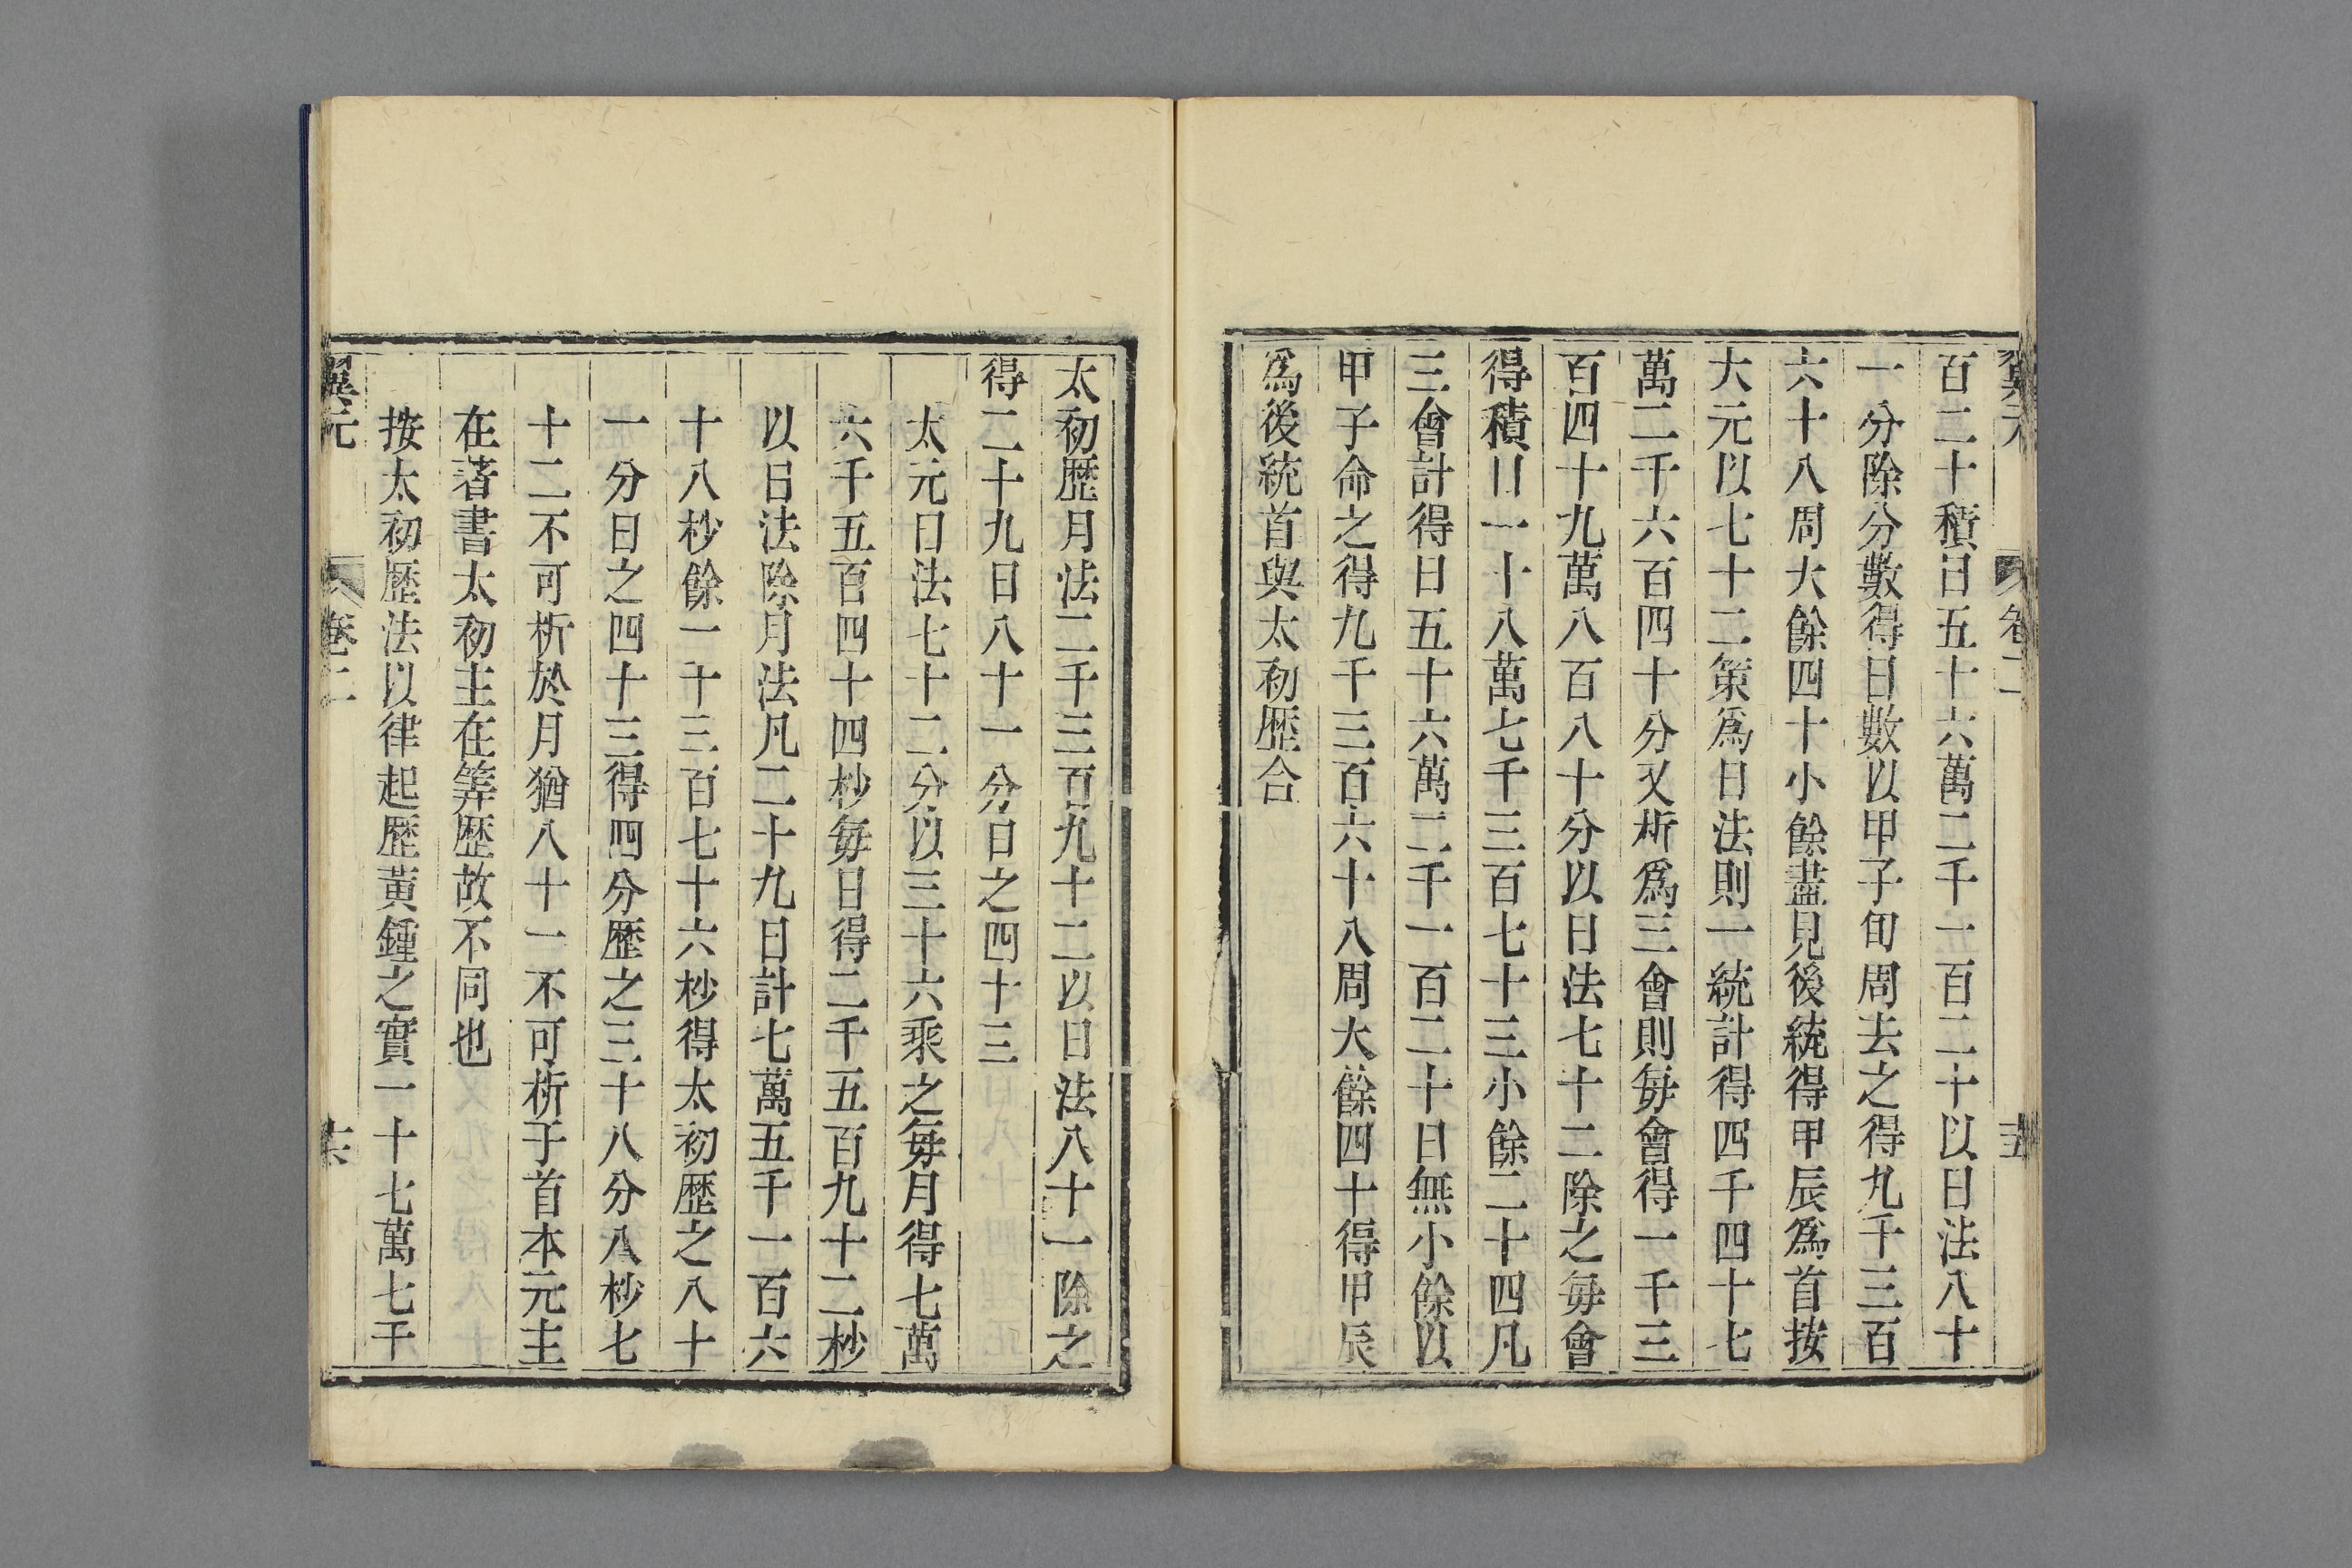 翼元 卷二 十五
百二十積日五十六萬二千一百二十以日法八十
一分除分數得日數以甲子旬周去之得九千三百
六十八周大餘四十小餘盡見後統得甲辰爲首按
大元以七十二策爲日法則一統計得四千四十七
萬二千六百四十分又析爲三會則每會得一千三
百四十九萬八百八十分以日法七十二除之每會
得積日一十八萬七千三百七十三小餘二十四凡
三會計得日五十六萬二千一百二十日無小餘以
甲子命之得九千三百六十八周大餘四十得甲辰
爲後統首與太初歷合
太初歷月法二千三百九十二以日法八十一除之
得二十九日八十一分日之四十三
太元日法七十二分以三十六乘之每月得七萬
六千五百四十四杪每日得二千五百九十二杪
以日法除月法凡二十九日計七萬五千一百六
十八杪餘一千三百七十六杪得太初歷之八十
一分日之四十三得四分歷之三十八分八杪七
十二不可析於月猶八十一不可析于首本元主
在著書太初主在筭歷故不同也
按太初歷法以律起歷黃鍾之實一十七萬七千
翼元 卷二 十六